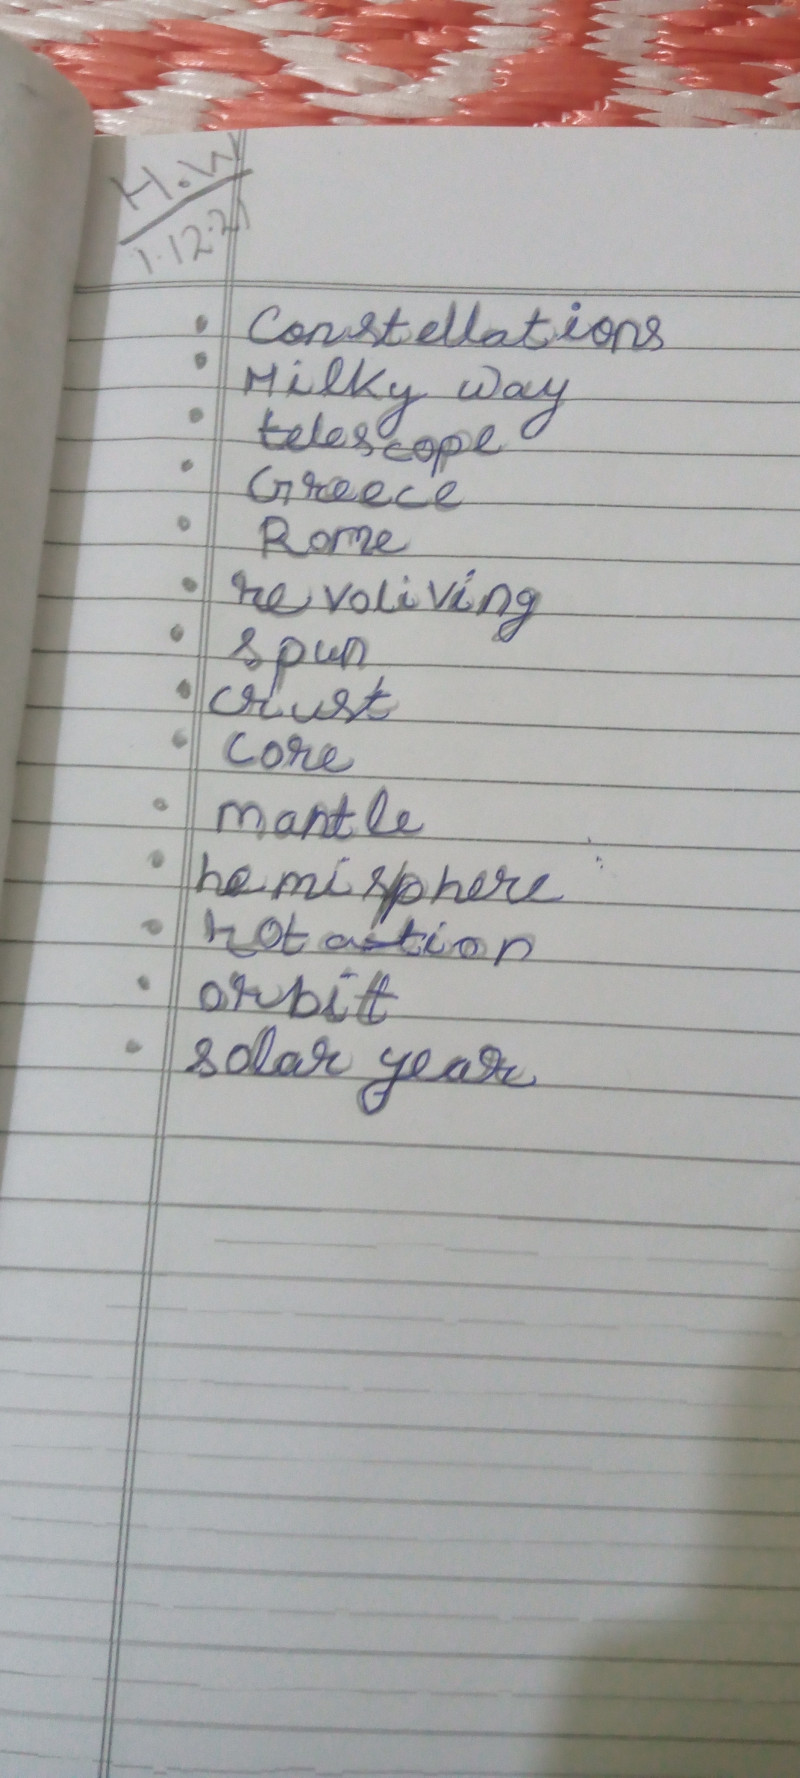 H.W
1.12.21
• Constellations
• Milky way
• telescope
• Greece
• Rome
• revoliving
• spun
• crust
• core
• mantle
• hemisphere
• rotation
• orbit
• solar year